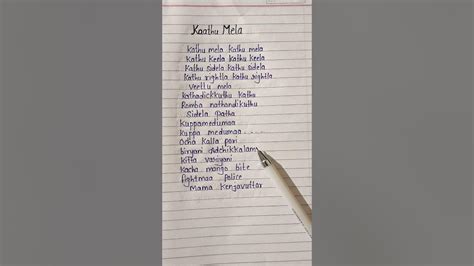 Kaathu Mela
Kathu mela kathu mela
Kathu keela kathu keela
Kathu sidela kathu sidela
Kathu rightla kathu rightla
Veetlu mela
Kathadickkuthu kathu
Romba nathandikuthu
Sidela Patha
Kuppamedumaa
Kuppa medumaa ....
Ocha kalla pori
biryani Adchikkalam
Kitta vaniyani
Kacha mango bite
fightmaa police
Mama kenjavuttar